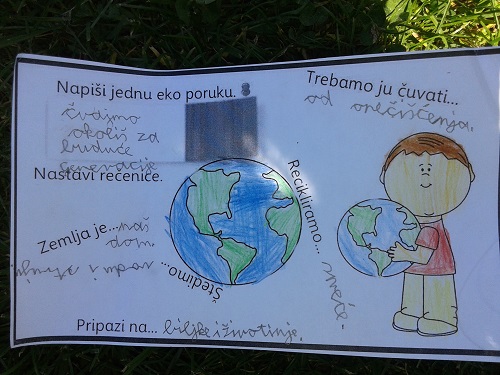 Napiši jednu eko poruku.
čuvajmo
okoliš za
buduće
generacije
Nastavi rečenice.
Trebamo ju čuvati...
od onečišćenja.
Zemlja je... naš
dom.
Recikliramo...
vreće.
Štedimo...
vodu i struju
Pripazi na... biljke i životinje.